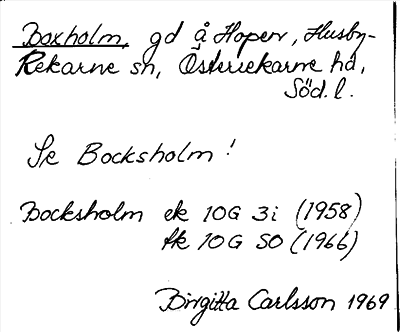 Boxholm, gd å Hopen, Husby-
Rekarne sn, Österrekarne hd,
Söd. l.
Se Bocksholm!
Bocksholm ek 10G 3i (1958)
tk 10G SO (1966)
Birgitta Carlsson 1969